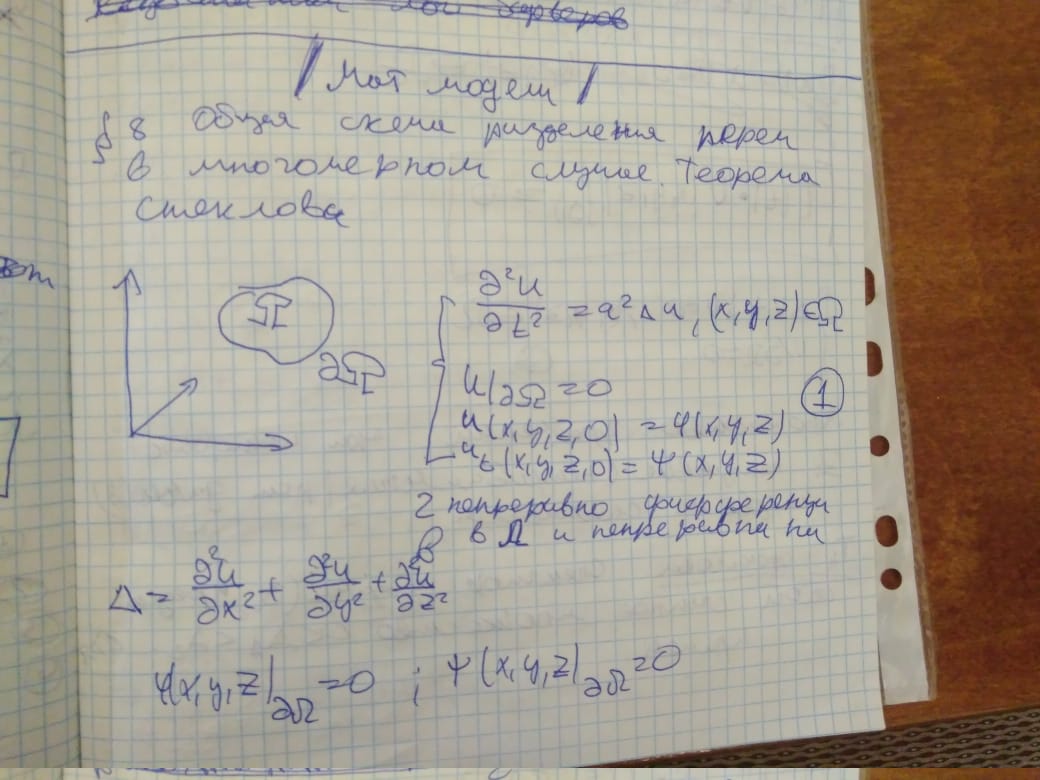 Мат модели
§ 8 Общая схема разделения перем
в многомерном случае. Теорема
Стеклова
Ω
∂Ω
∂²u/∂t² = a²Δu, (x,y,z)∈Ω
u|∂Ω = 0
①
u(x,y,z,0) = φ(x,y,z)
u_t(x,y,z,0) = ψ(x,y,z)
2 непреривно
в Ω и непреривна на
Δ = ∂²u/∂x² + ∂²u/∂y² + ∂²u/∂z²
φ(x,y,z)|∂Ω = 0 ; ψ(x,y,z)|∂Ω = 0